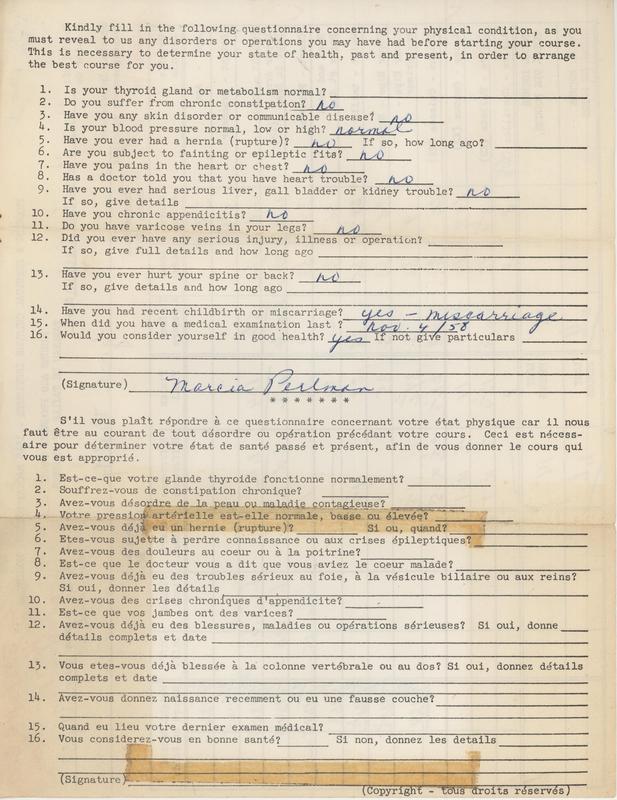 Kindly fill in the following questionnaire concerning your physical condition, as you
must reveal to us any disorders or operations you may have had before starting your course.
This is necessary to determine your state of health, past and present, in order to arrange
the best course for you.
1. Is your thyroid gland or metabolism normal?
2. Do you suffer from chronic constipation? no
3. Have you any skin disorder or communicable disease? no
4. Is your blood pressure normal, low or high? normal
5. Have you ever had a hernia (rupture)? no If so, how long ago?
6. Are you subject to fainting or epileptic fits? no
7. Have you pains in the heart or chest? no
8. Has a doctor told you that you have heart trouble? no
9. Have you ever had serious liver, gall bladder or kidney trouble? no
If so, give details
10. Have you chronic appendicitis? no
11. Do you have varicose veins in your legs? no
12. Did you ever have any serious injury, illness or operation?
If so, give full details and how long ago
13. Have you ever hurt your spine or back? no
If so, give details and how long ago
14. Have you had recent childbirth or miscarriage? yes - miscarriage
15. When did you have a medical examination last ? Nov. 4/58
16. Would you consider yourself in good health? yes If not give particulars
(Signature) Marcia Perlman
* * * * * * *
S'il vous plaît répondre à ce questionnaire concernant votre état physique car il nous
faut être au courant de tout désordre ou opération précédant votre cours. Ceci est nécess-
aire pour déterminer votre état de santé passé et présent, afin de vous donner le cours qui
vous est approprié.
1. Est-ce-que votre glande thyroide fonctionne normalement?
2. Souffrez-vous de constipation chronique?
3. Avez-vous désordre de la peau ou maladie contagieuse?
4. Votre pression artérielle est-elle normale, basse ou élevée?
5. Avez-vous déjà eu un hernie (rupture)? Si ou, quand?
6. Etes-vous sujette à perdre connaissance ou aux crises épileptiques?
7. Avez-vous des douleurs au coeur ou à la poitrine?
8. Est-ce que le docteur vous a dit que vous aviez le coeur malade?
9. Avez-vous déjà eu des troubles sérieux au foie, à la vésicule biliaire ou aux reins?
Si oui, donner les détails
10. Avez-vous des crises chroniques d'appendicite?
11. Est-ce que vos jambes ont des varices?
12. Avez-vous déjà eu des blessures, maladies ou opérations sérieuses? Si oui, donne
détails complets et date
13. Vous etes-vous déjà blessée à la colonne vertébrale ou au dos? Si oui, donnez détails
complets et date
14. Avez-vous donnez naissance recemment ou eu une fausse couche?
15. Quand eu lieu votre dernier examen médical?
16. Vous considerez-vous en bonne santé? Si non, donnez les details
(Signature)
(Copyright - tous droits réservés)